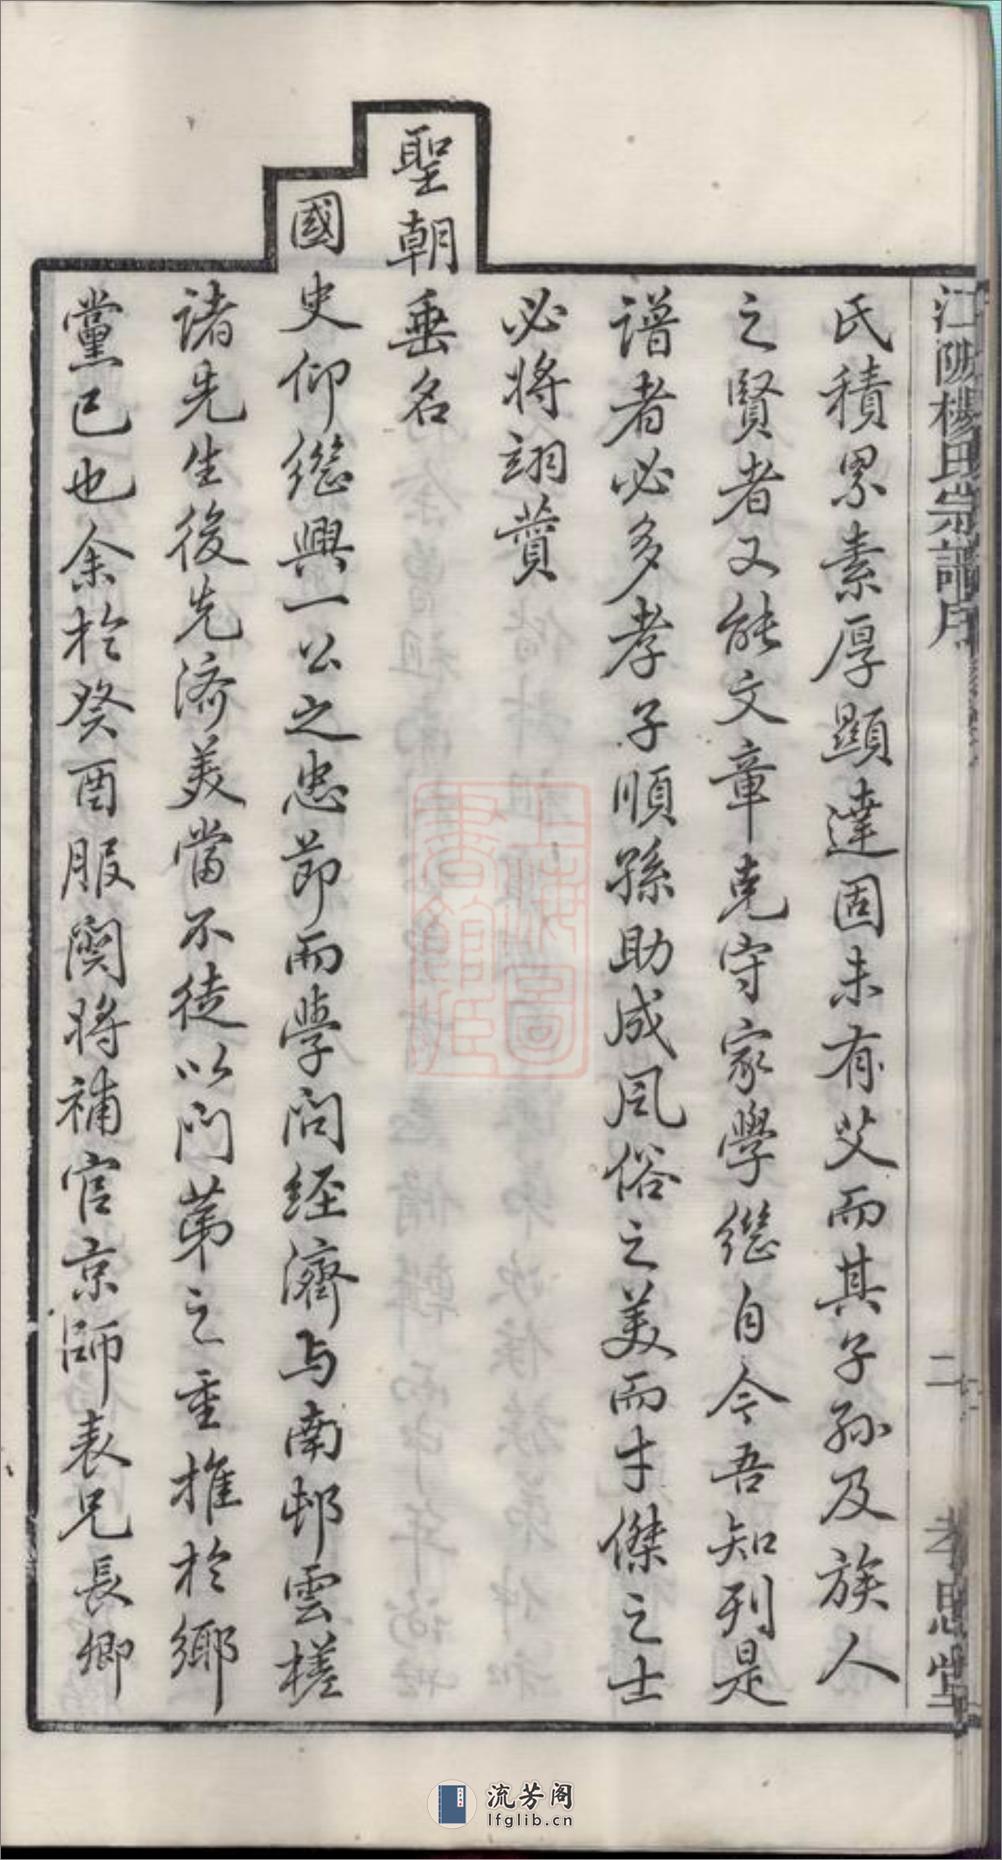 江陰楊氏宗譜序
二
孝思堂
氏積累素厚顯達固未有艾而其子孫及族人
之賢者又能文章克守家學繼自今吾知刊是
譜者必多孝子順孫助成風俗之美而才傑之士
必將翊贊
聖朝垂名
國史仰繼興一公之忠節而學問經濟与南邨雲槎
諸先生後先濟美當不徒以門第之重推於鄉
黨已也余於癸酉服闋將補官京師表兄長卿
上海圖書館藏
流芳阁
lfglib.cn